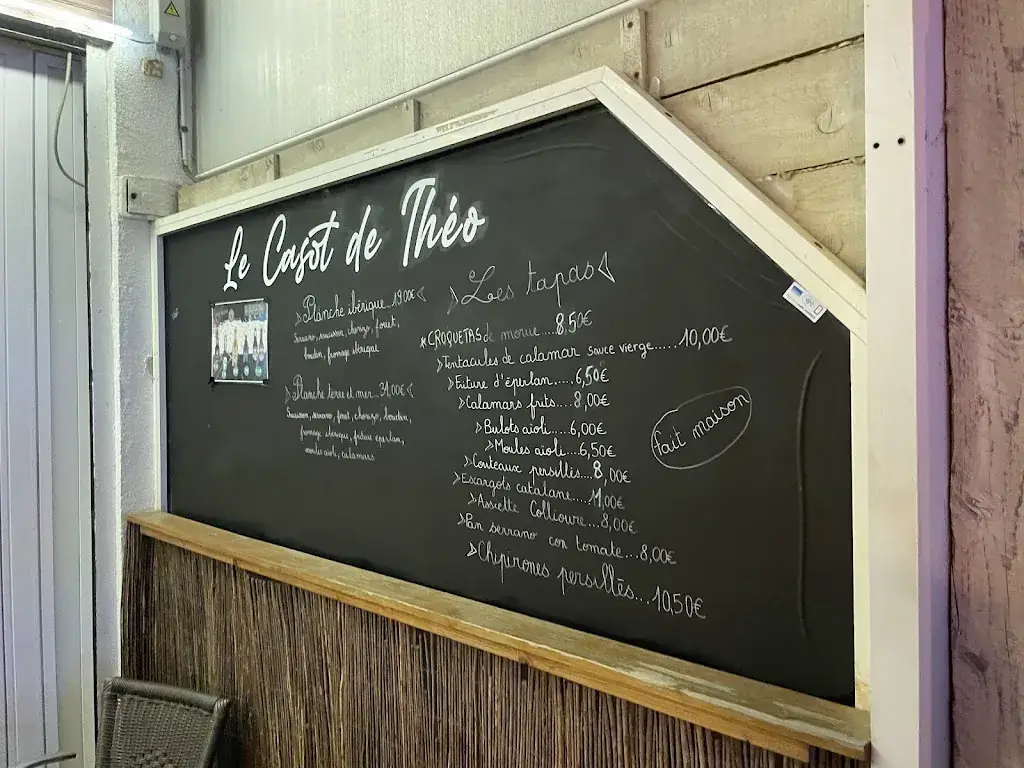 Le Casot de Théo
Planche ibérique...19,00€
Serrano, saucisson, chorizo, fouet,
boudin, fromage ibérique
Planche terre et mer...31,00€
Saucisson, serrano, fouet, chorizo, boudin,
fromage ibérique, friture éperlan,
moules aioli, calamars
Les tapas
*CROQUETAS de morue....8,50€
Tentacules de calamar sauce vierge.....10,00€
Friture d'éperlan.....6,50€
Calamars frits....8,00€
Bulots aioli....6,00€
Moules aioli...6,50€
Couteaux persillés....8,00€
Escargots catalane....11,00€
Assiette Collioure...8,00€
Pan serrano con tomate...8,00€
Chipirones persillés...10,50€
fait maison